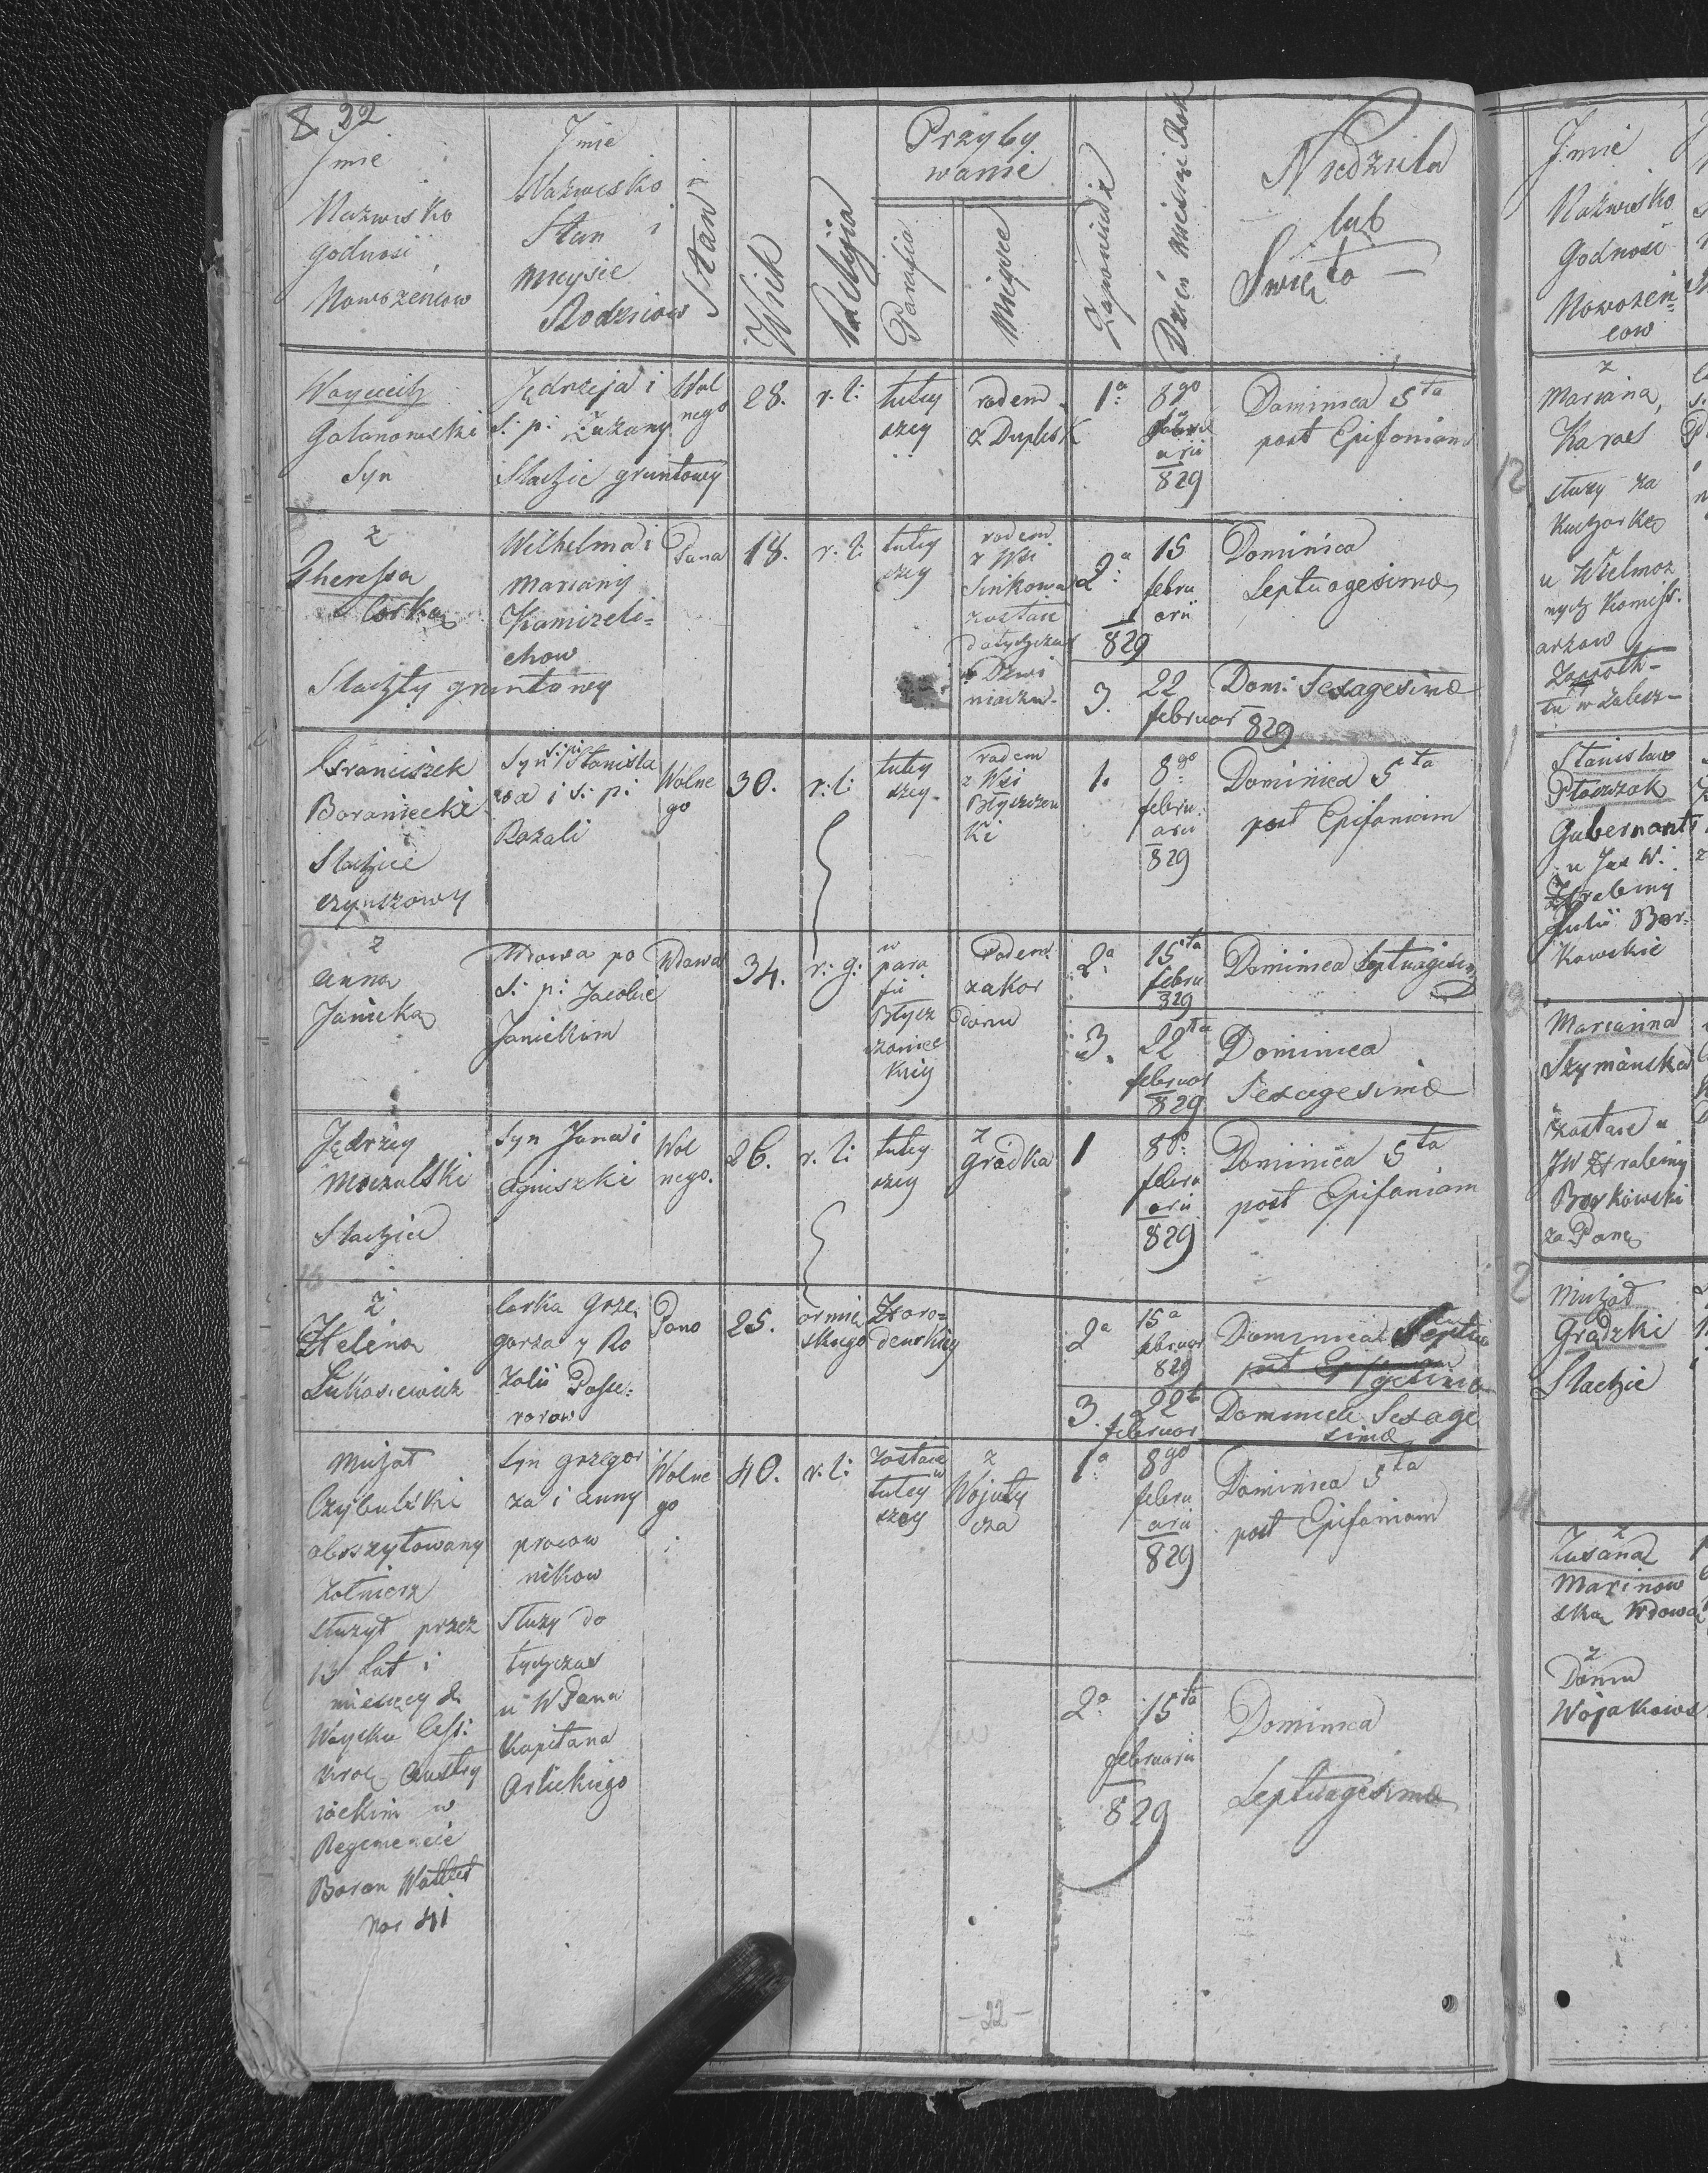 8. 22
Jmie
Nazwisko
Godnosi
Nowożeńcow
Jmie
Nazwisko
Stan i
mieysce
Rodziców
Stan
Wiek
Religija
Przyby
wanie
Parafia
Mieysce
Zapowiedz
Dzień Miesiąc Rok
Niedziela
lub
Swięto —
Woyciech
Golanowski
Syn
Jędrzeja i
S: p: Zuzany
Slachcic gruntowy
Wol
nego
28.
r. l:
tutey
szey
rodem
z Duplisk
1a
8go
februa
arii
829
Dominica 5ta
post Epifaniam
z
Theressa
Corka
Slachty gruntowy
Wilhelma i
Marianny
Kamizeli=
chow
Pana
18.
r. l:
tutey
szey
rodem
z Wsi
Sinkowa
zostaie
dotychczas
w Dzwi
niaczu
2a
15
febru
arii
829
Dominica
Septuagesima
3.
22
februar
829
Dom: Sexagesima
Franciszek
Boraniecki
Slachcic
czynszowy
Syn S: p: Stanisla
wa i S: p:
Rozali
Wolne
go
30.
r: l:
tutey
szey
rodem
z Wsi
Blyszczan
ki
1.
8go
febru
arii
829
Dominica 5ta
post Epifaniam
z
Anna
Janicka
Wdowa po
S: p: Jacobie
Janickim
Wdowa
34.
r: g:
w
para
fii
Blycz
czaniec
kiey
Rodem
zakor
donu
2a
15ta
febru
829
Dominica Septuagesim
3.
22ta
februar
829
Dominica
Sexagesima
Jędrzey
Moczulski
Slachcic
Syn Jana i
Agnieszki
Wol
nego.
26.
r. l:
tutey
szey
z
Grodka
1
8go
febru
arii
829
Dominica 5ta
post Epifaniam
z
Helena
Lukasiewicz
Corka Grze
gorza y Ro
zalii Posse=
rorow
Pana
25.
ormia
skiego
Horo=
denskiey
2a
15a
februar
829
Dominica Septua
post
gesima
3.
22t
februar
Dominica Sexage
sima
Michał
Czybulski
abszytowany
żołnierz
służył przez
13 Lat i
miesięcy 2
Woysku Ces:
Krol: Austry
iackim w
Regemencie
Baron Watlet
Nor 41
Syn Grzegor
za i Anny
pracow
nikow
Służy do
tychczas
u W Pana
Kapitana
Arlickiego
Wolne
go
40.
r. l:
zostaie
w
tutey
szey
z
Wojuty
cza
1a
8go
febru
arii
829
Dominica 5ta
post Epifaniam
2a
15ta
februarii
829
Dominica
Septuagesima
-22-
Jmie
Nazwisko
Godnosi
Nowożeń=
cow
z
Marianna,
Karas
służy za
Kucharkę
u Wielmoz
nych Komiss.
arzow
w Zalesz-
Stanislaw
Ptaszak
Gubernant
u Jas W:
Hrabiny
Julii Bor-
kowskie
Marianna
Szymanska
zostaie u
JW Hrabiny
Borkowski
za Pannę
Michał
Gradzki
Slachcic
z
Zusana
Marinow
ska Wdowa
z
Domu
Wojakows